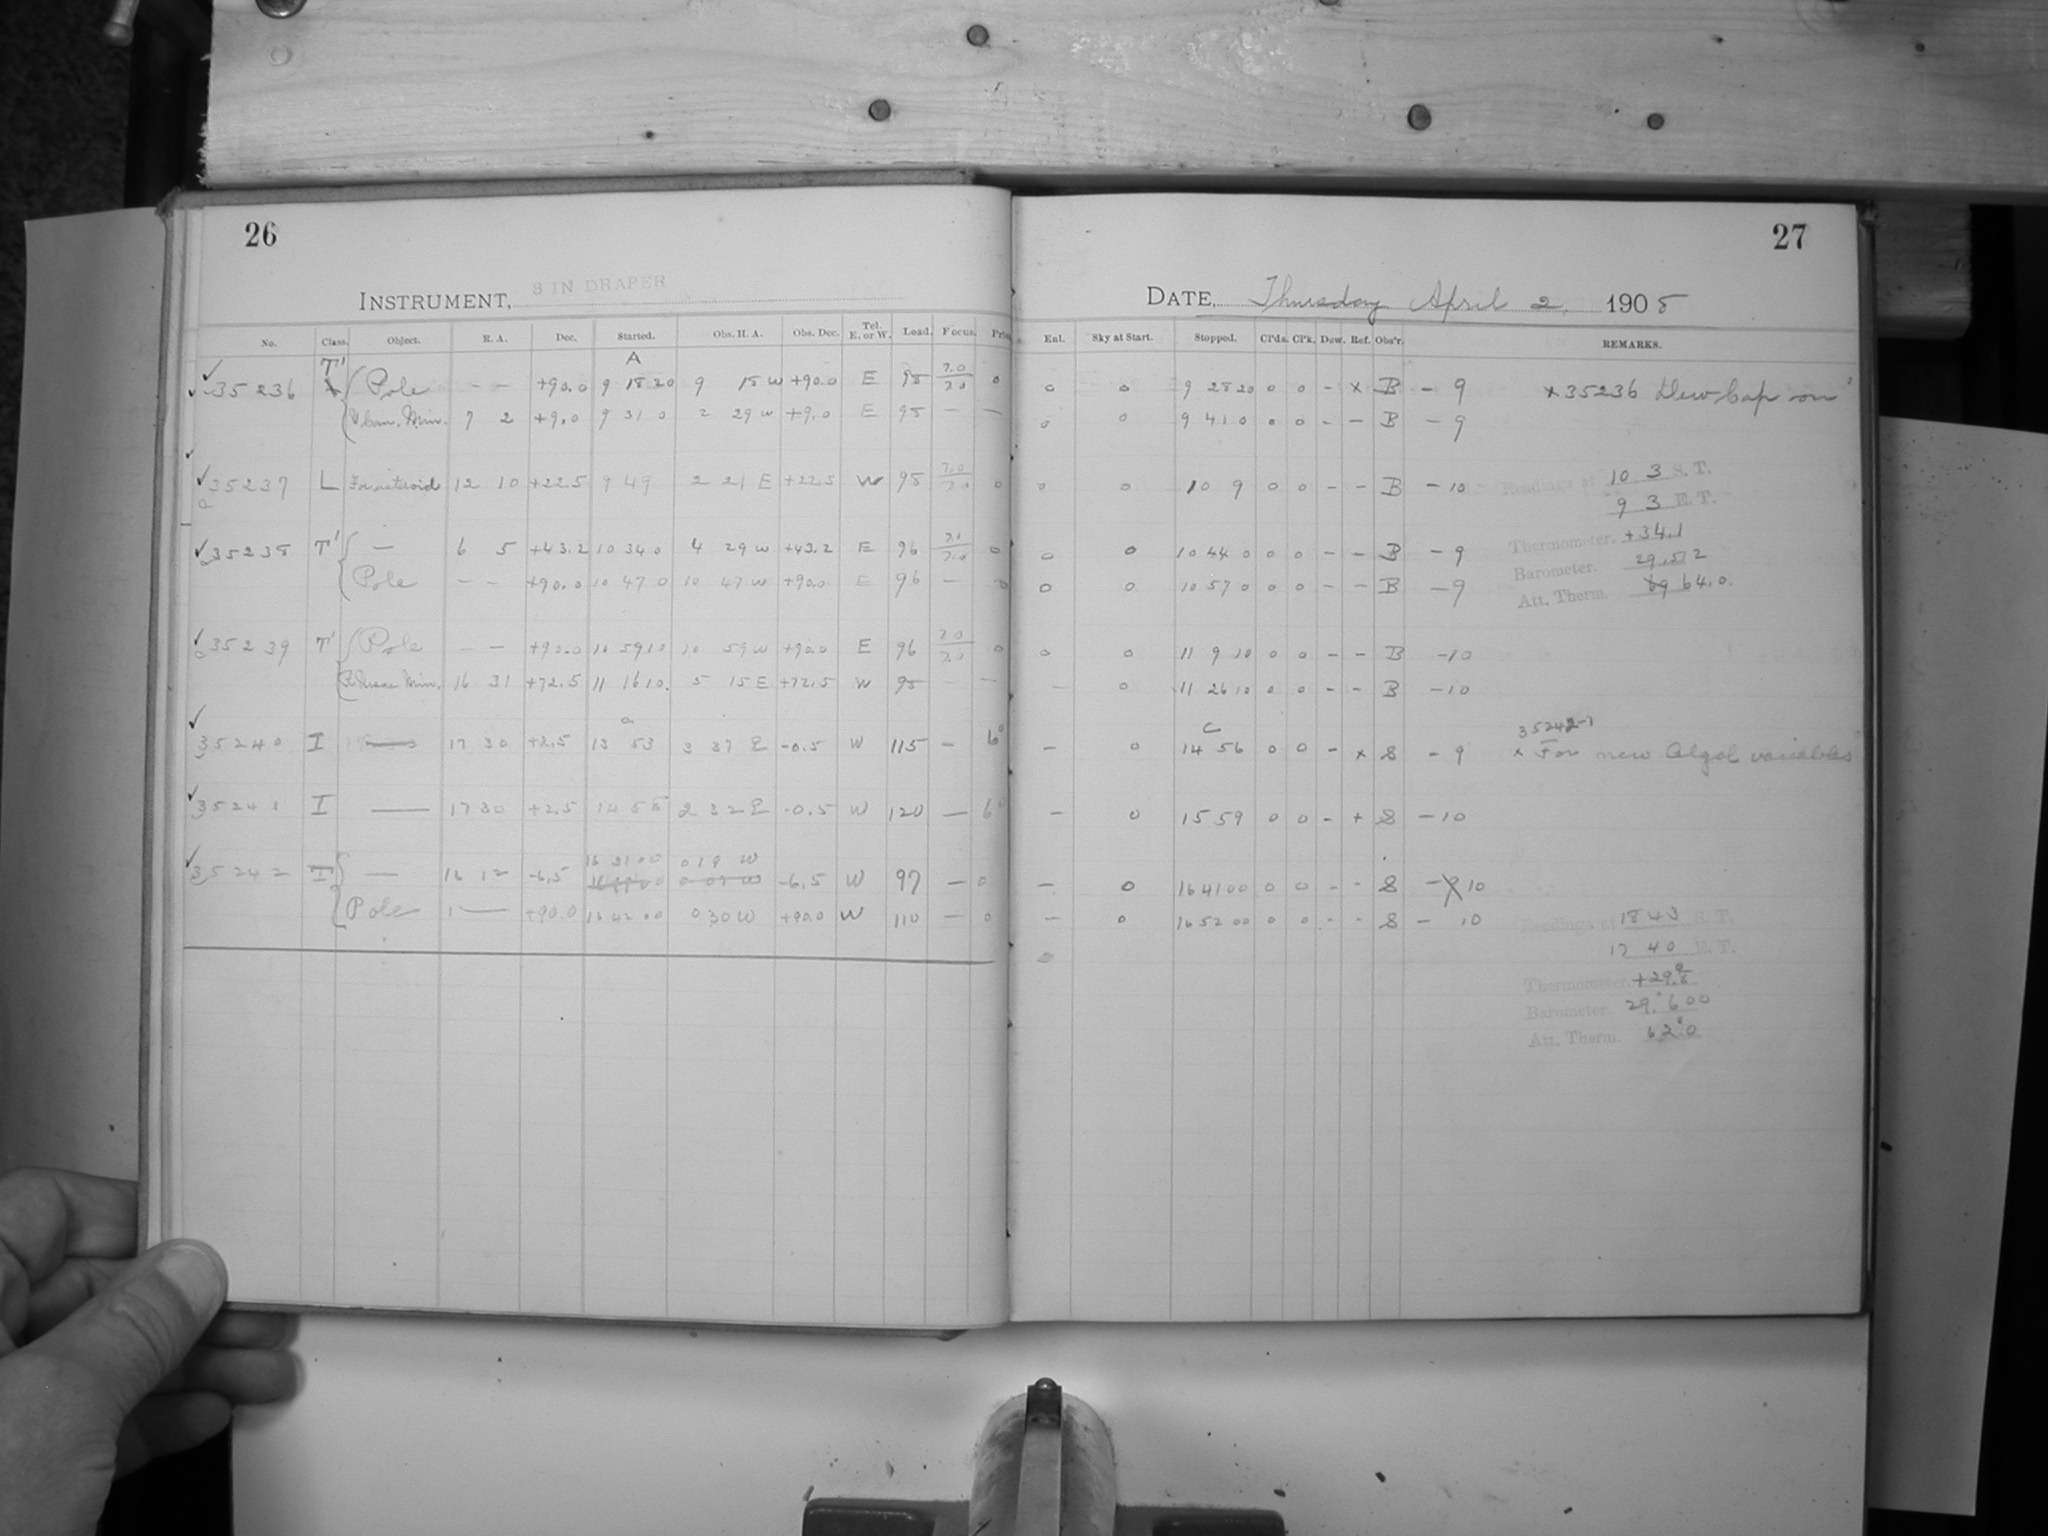 26
INSTRUMENT, 8 IN DRAPER
No. Class. Object. R. A. Dec. Started. Obs. H. A. Obs. Dec. Tel. E. or W. Load. Focus.
A
T'
35236 Pole – – +90.0 9 18 20 9 18 W +90.0 E 98 7.0/7.0 0
Min. 7 2 +9.0 9 31 0 2 29 W +9.0 E 98 – –
35237 L For asteroid 12 10 +22.5 9 49 2 21 E +22.5 W 98 7.0/7.0 0
35238 T' — 6 5 +43.2 10 34 0 4 29 W +43.2 E 96 7.0/7.0 0
Pole – – +90.0 10 47 0 10 47 W +90.0 E 96 – 0
35239 T' Pole – – +90.0 10 59 10 10 59 W +90.0 E 96 7.0/7.0 0
Min. 16 31 +72.5 11 16 10 5 15 E +72.5 W 98 – –
a
35240 I — 17 30 +2.5 13 53 3 37 E -0.5 W 115 – 6°
35241 I — 17 30 +2.5 14 58 2 32 E -0.5 W 120 — 6°
16 31 00 0 19 W
35242 I — 16 12 -6.5 -6.5 W 97 – 0
Pole — +90.0 16 42 00 0 30 W +90.0 W 110 – 0
27
DATE, Thursday April 2, 1908
Enl. Sky at Start. Stopped. Cl'ds. Cl'k. Dew. Ref. Obs'r. REMARKS.
0 0 9 28 20 0 0 – x B – 9 x 35236 Dew Cap on
0 0 9 41 0 0 0 – – B – 9
0 0 10 9 0 0 – – B – 10 Readings at 10 3 S. T.
9 3 E. T.
0 0 10 44 0 0 0 – – B – 9 Thermometer. +34.1
Barometer. 29.572
0 0 10 57 0 0 0 – – B – 9 Att. Therm. 64.0.
0 0 11 9 10 0 0 – – B – 10
– 0 11 26 10 0 0 – – B – 10
C
– 0 14 56 0 0 – x S – 9 x For new Algol variables
– 0 15 59 0 0 – + S – 10
– 0 16 41 00 0 0 – – S – 10
– 0 16 52 00 0 0 – – S – 10 Readings at 18 43 S. T.
0 17 40 E. T.
Thermometer.
Barometer. 29.600
Att. Therm. 62.0